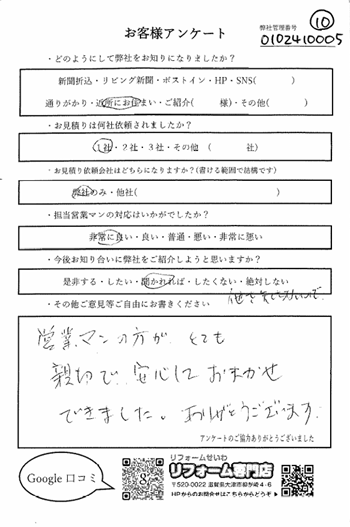 お客様アンケート
弊社管理番号 ⑩
0102410005
・どのようにして弊社をお知りになりましたか？
新聞折込・リビング新聞・ポストイン・HP・SNS(　　　)
通りがかり・近所にお住まい・ご紹介(　　　様)・その他(　　　)
・お見積りは何社依頼されましたか？
1社・2社・3社・その他（　　　社）
・お見積り依頼会社はどちらになりますか？(書ける範囲で結構です)
弊社のみ・他社(　　　)
・担当営業マンの対応はいかがでしたか？
非常に良い・良い・普通・悪い・非常に悪い
・今後お知り合いに弊社をご紹介しようと思いますか？
是非する・したい・聞かれれば・したくない・絶対しない
・その他ご意見等ご自由にお書きください
営業マンの方が とても
親切で 安心して おまかせ
できました。ありがとうございます
アンケートのご協力ありがとうございました
Google口コミ
リフォームせいわ
リフォーム専門店
〒520-0022 滋賀県大津市柳が崎4-6
HPからのお問合せはこちらからどうぞ